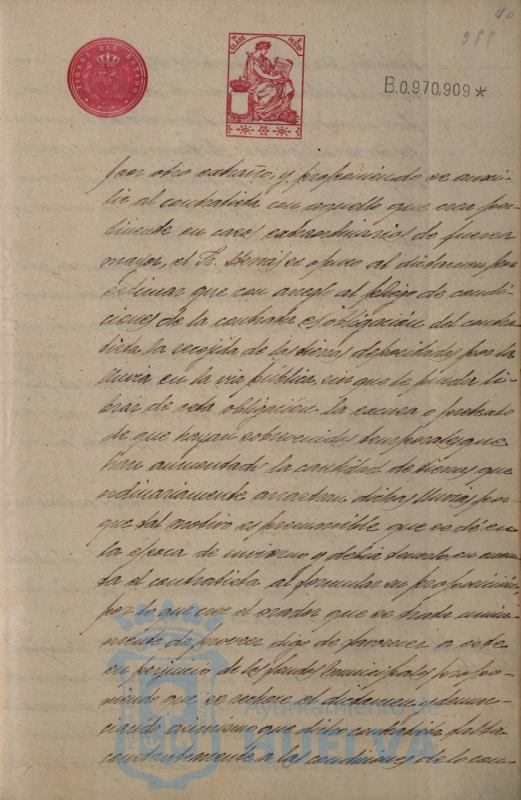 40
388
TIMBRE DEL ESTADO
B.0.970,909*
por otro extraño, y proponiendo se auxi-
lie al contratista con aquello que crea per-
tinente en casos extraordinarios de fuerza
mayor, el Sr. se opuso al dictamen por
estimar que con arreglo al pliego de condi-
ciones de la contrata es obligación del contra-
tista la recojida de las tierras depositadas por la
lluvia en la via pública, sin que le pueda li-
brar de esta obligación la escusa o pretesto
de que hayan sobrevenido temporales que
han aumentado la cantidad de tierras que
ordinariamente arrastran dichas lluvias por-
que tal motivo es presumible que se dé en
la época de invierno y debia tenerlo en cuen-
ta el contratista al formular su proposición,
por lo que cree el orador que se trata unica-
mente de proveer digo de favorecer a este
en perjuicio de los fondos Municipales propo-
niendo que se rechace el dictamen y denun-
ciando asimismo que dicho contratista falta
constantemente a las condiciones de lo con-
Ayuntamiento de
HUELVA